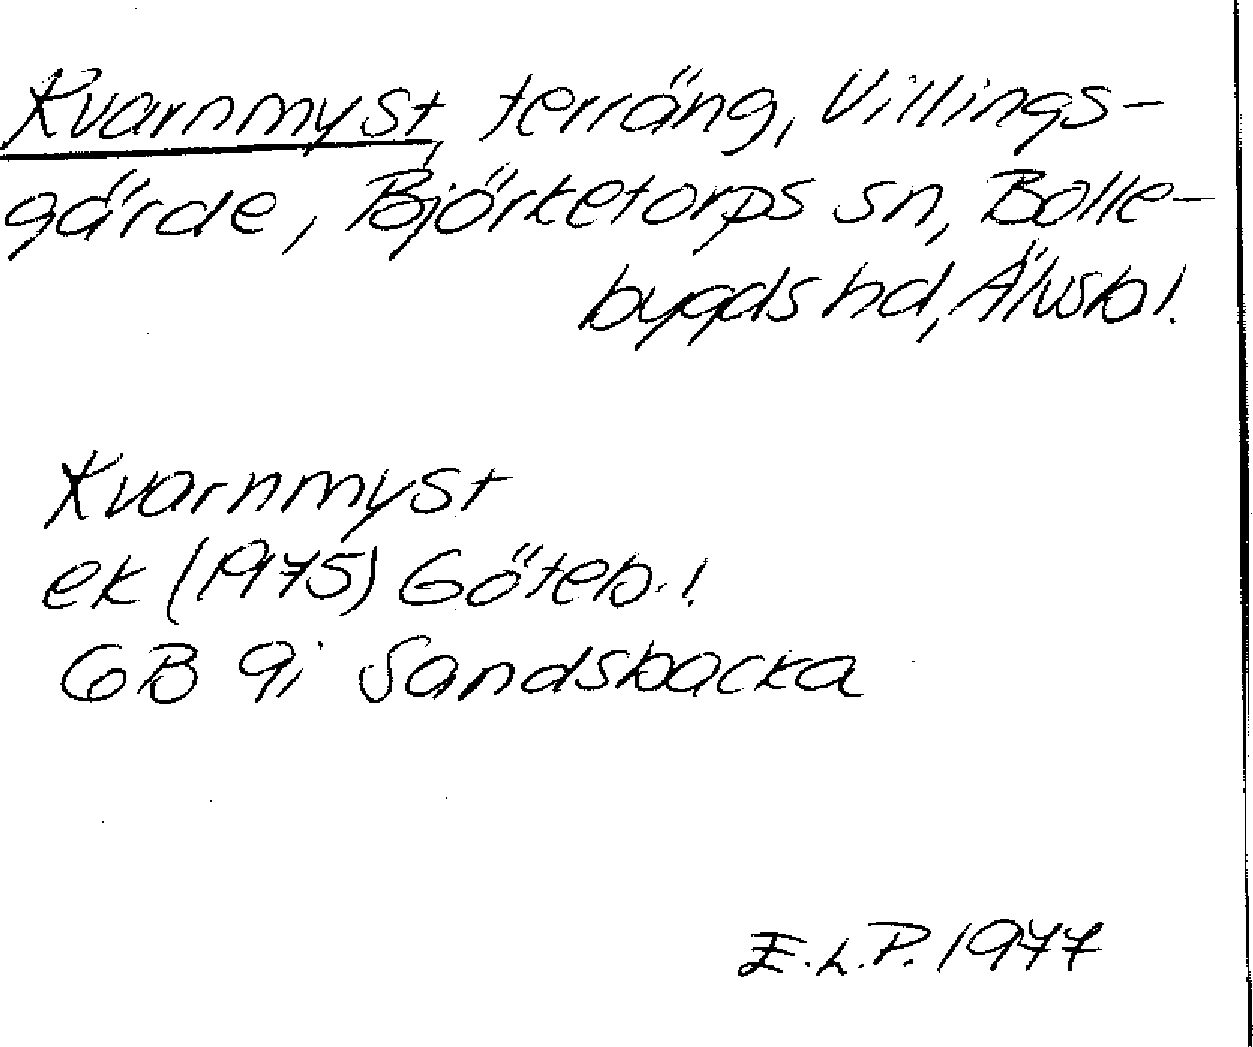 Kvarnmyst, terräng, Villings-
gärde, Björketorps sn, Bolle-
bygds hd, Älvsb l.
Kvarnmyst
ek (1975) Göteb. l
GB 9i Sandsbacka
E.L.P. 1977